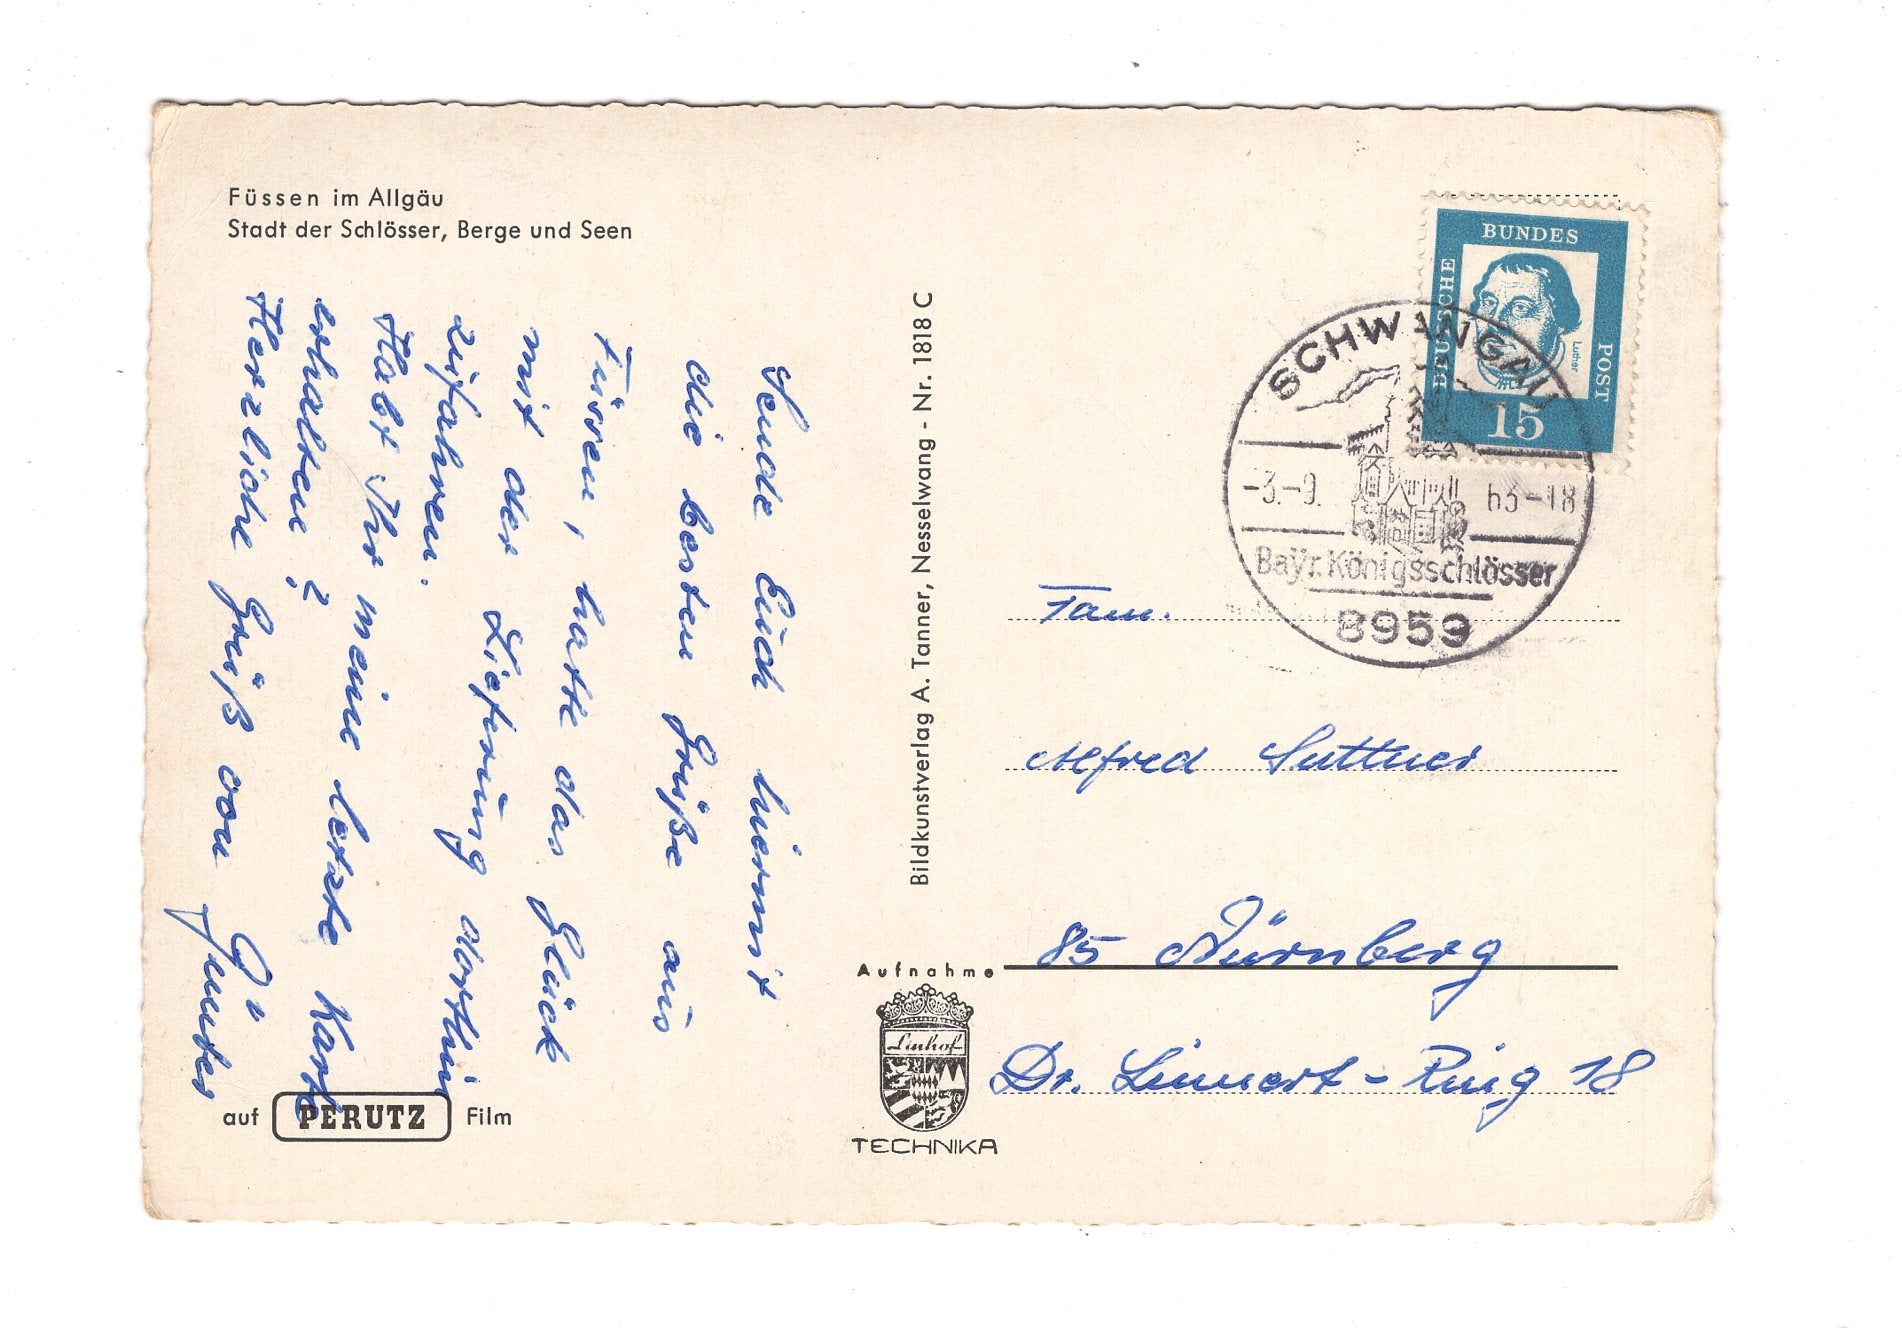 Füssen im Allgäu
Stadt der Schlösser, Berge und Seen
Sende Euch hiermit
die besten Grüße aus
Füssen, hatte das Glück
mit der Lieferung dorthin
zufahren.
Habt Ihr meine letzte Karte
erhalten?
Herzliche Grüß von Günter
auf PERUTZ Film
Bildkunstverlag A. Tanner, Nesselwang - Nr. 1818 C
Aufnahme
Linhof
TECHNIKA
DEUTSCHE BUNDES POST
Luther
15
SCHWANGAU
-3.-9. 63-18
Bayr. Königsschlösser
8959
Fam.
Alfred Suttner
85 Nürnberg
Dr. Linnert-Ring 18